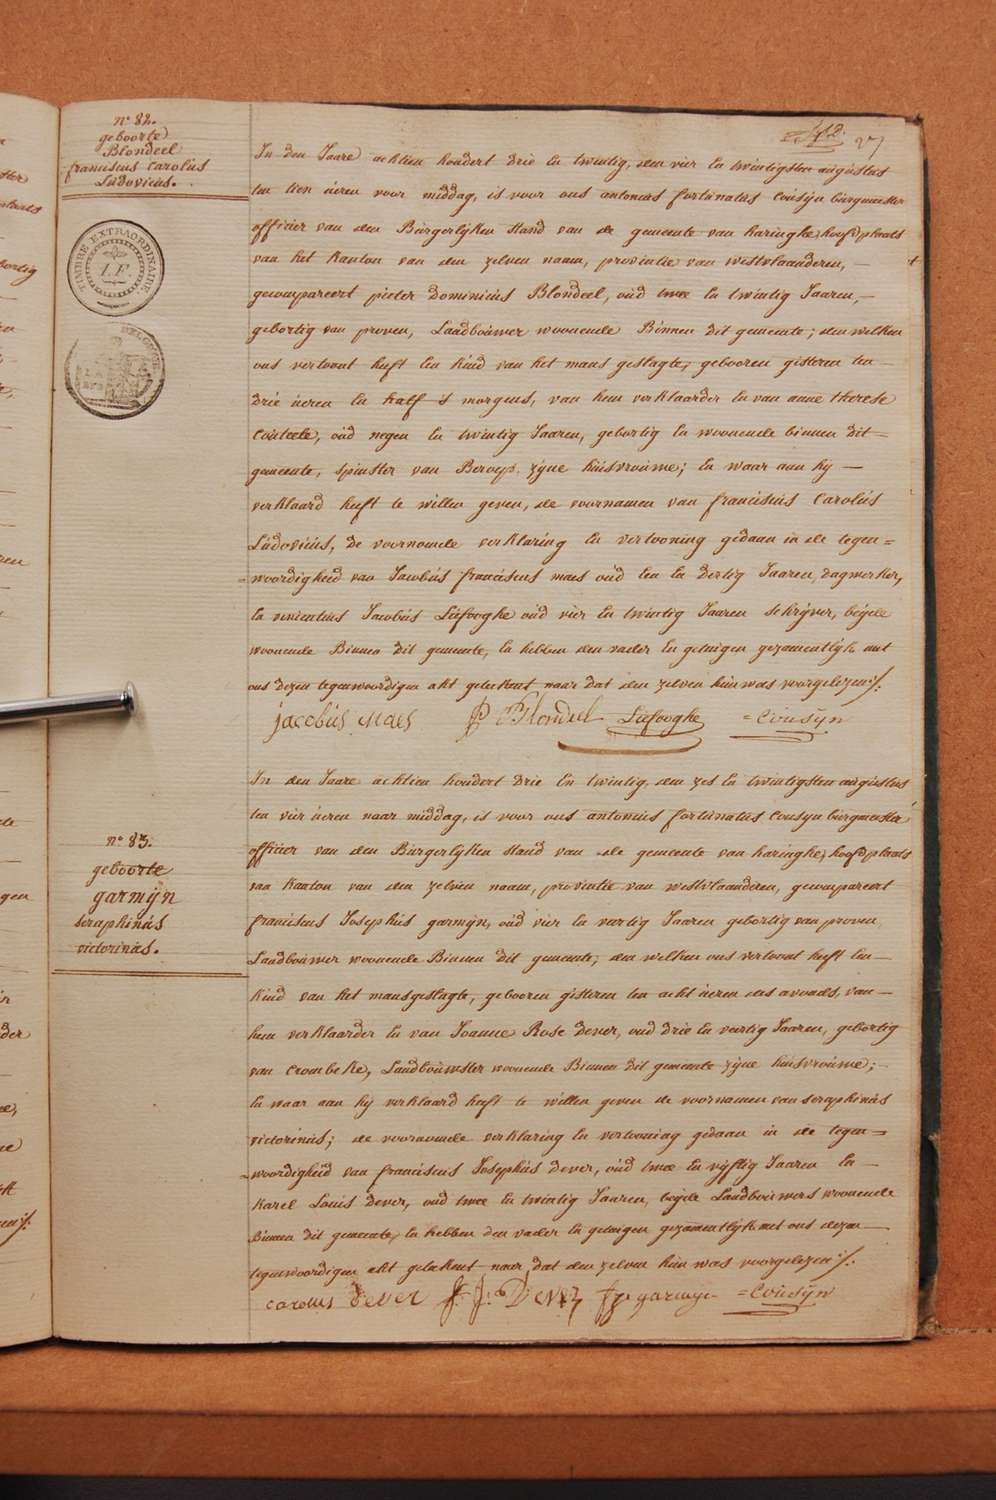 n° 82.
geboorte
Blondeel
franciscus Carolus
Ludovicus.
TIMBRE EXTRAORDINAIRE
1.F.
27
In den Jaare achtien hondert drie en twintig, den vier en twintigsten augustus
ten tien ueren voor middag, is voor ons antonius fortunatus Cousyn burgmeester
officier van den Burgerlyken stand van de gemeente van haringhe, hoofdplaats
van het kanton van den zelven naam, provintie van westvlaanderen, —
gecompareert pieter Dominicus Blondeel, oud twee en twintig Jaaren, —
gebortig van proven, Landbouwer woonende Binnen dit gemeente; den welken
ons vertoont heeft een kind van het mans geslagte, gebooren gisteren ten —
drie ueren en half 's morgens, van hem verklaarder en van anne therese
Couteele, oud negen en twintig Jaaren, gebortig en woonende binnen dit =
gemeente, spinster van Beroep. zyne huisvrouwe; en waar aan hy —
verklaard heeft te willen geven, de voornamen van franciscus Carolus
Ludovicus, de voornoemde verklaring en vertooning gedaan in de tegen=
=woordigheid van Jacobus franciscus maes oud een en dertig Jaaren, dagwerker,
en venientius Jacobus Liefooghe oud vier en twintig Jaaren schryver, beyde
woonende Binnen dit gemeente, en hebben den vader en getuigen gezamentlyk met
ons dezen tegenwoordigen akt geteekent naar dat den zelven hun was voorgelezen ./.
jacobus Maes P D Blondeel Liefooghe =Cousyn
n° 83.
geboorte
garmyn
seraphinus
victorinus.
In den Jaare achtien hondert drie en twintig, den zes en twintigsten augustus
ten vier ueren naar middag, is voor ons antonius fortunatus Cousyn burgmeester
officier van den Burgerlyken stand van de gemeente van haringhe, hoofdplaats
van kanton van den zelven naam, provintie van westvlaanderen, gecompareert
franciscus Josephus garmyn, oud vier en veertig Jaaren gebortig van proven
Landbouwer woonende Binnen dit gemeente, den welken ons vertoont heeft een —
kind van het mansgeslagte, gebooren gisteren ten acht ueren des avonds, van —
hem verklaarder en van Joanne Rose Dever, oud drie en veertig Jaaren, gebortig
van Crombeke, Landbouwster woonende Binnen dit gemeente zyne huisvrouwe; —
en waar aan hy verklaard heeft te willen geven de voornamen van seraphinus
victorinus; de voornoemde verklaring en vertooning gedaan in de tegen=
=woordigheid van franciscus Josephus Dever, oud twee en vyftig Jaaren en —
Karel Louis Dever, oud twee en twintig Jaaren, beyde Landbouwers woonende
Binnen dit gemeente, en hebben den vader en getuigen gezamentlyk met ons dezen —
tegenwoordigen akt geteekent naar dat den zelven hun was voorgelezen ./.
carolus Dever f. j. Dever fj garmyn =Cousyn